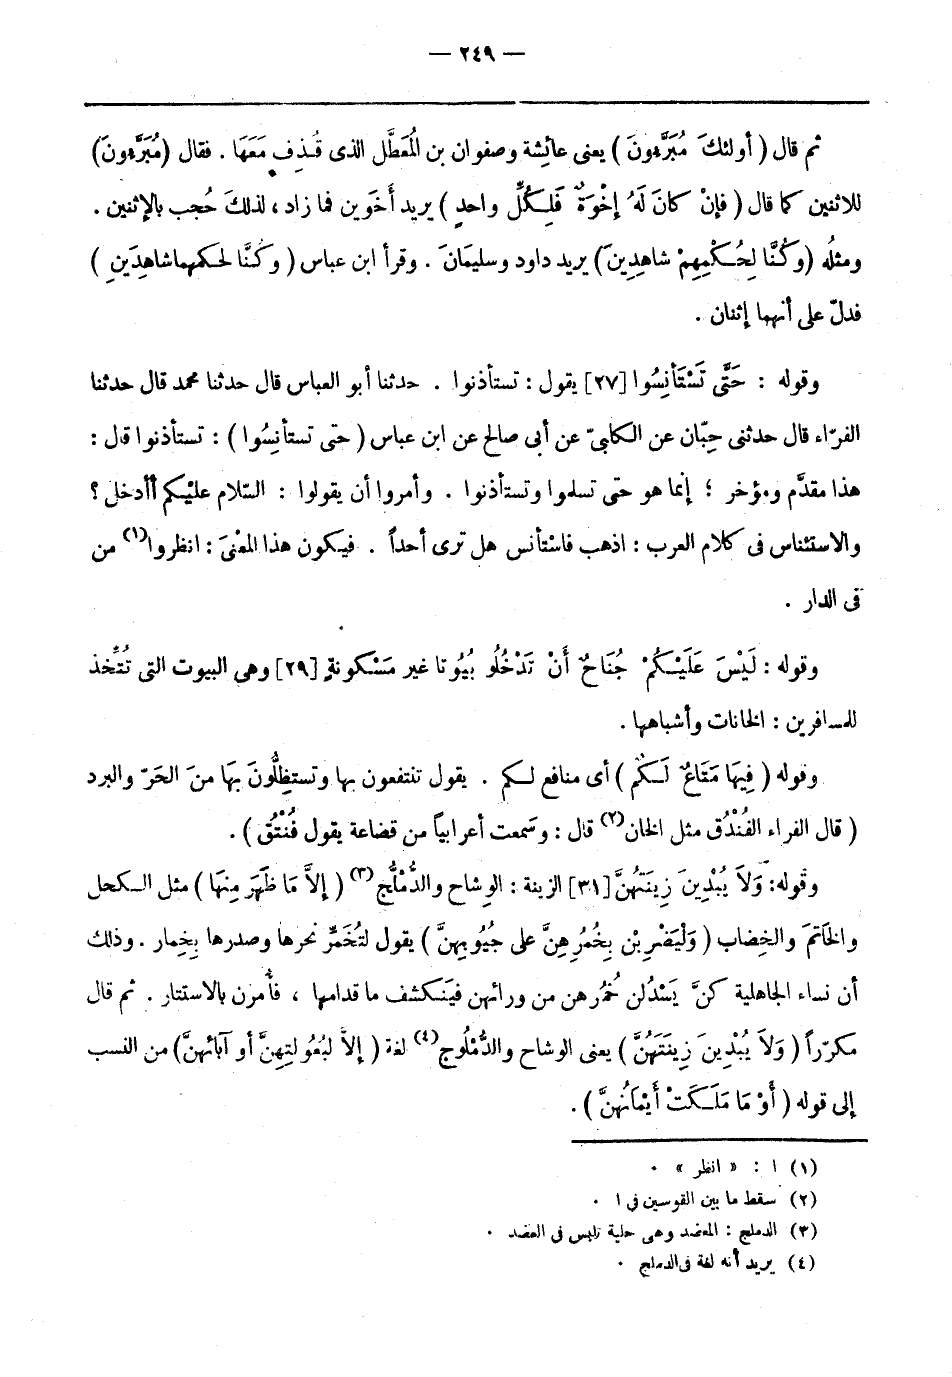 — ٢٤٩ —
ثم قال ( أولئكَ مُبَرَّءونَ ) يعنى عائِشة وصفوان بن المُعَطَّل الذى قُذِفِ مَعَهَا . فقال (مُبَرَّءونَ)
للاثنين كما قال ( فإنْ كانَ لَهُ إخْوَةٌ فَلِكُلِّ واحدٍ ) يريد أخَوين فما زاد ، لذلكَ حُجب بالإثنين .
ومثلُه (وكُنَّا لِحُكْمِهِمْ شاهِدِينَ) يريد داود وسليمانَ . وقرأ ابن عباس ( وكنَّا لحكمهما شاهِدَينِ )
فدلّ على أنهما إثنان .
وقوله : حَتَّى تَسْتَأنِسُوا [٢٧] يقول : تستأذنوا . حدثنا أبو العباس قال حدثنا محمد قال حدثنا
الفرّاء قال حدثنى حِبّان عن الكلبىّ عن أبى صالح عن ابن عباس ( حتى تستأنِسُوا ) : تستأذنوا قال :
هذا مقدَّم ومؤخر ؛ إنما هو حتى تسلموا وتستأذنوا . وأمروا أن يقولوا : السّلام عليْكم أأدخل ؟
والاستئناس فى كلام العرب : اذهب فاسْتأنس هل ترى أحداً . فيكون هذا المعْنىَ : انظروا(١) من
فى الدار .
وقوله : لَيْسَ عَلَيْكُمْ جُنَاحٌ أَنْ تَدْخُلُو بُيُوتا غير مَسْكونةٍ [٢٩] وهى البيوت التى تُتَّخذ
للمسافرين : الخانات وأشباهها .
وقوله ( فِيهَا مَتَاعٌ لَكُم ) أى منافع لكم . يقول تنتفعون بها وتستظِلُّونَ بهَا منَ الحَرّ والبرد
( قال الفراء الفُنْدُق مثل الخان(٢) قال : وسَمعت أعرابياً من قضاعة يقول فُنْتُق ) .
وقوله: وَلاَ يُبْدِينَ زِينَتَهُنَّ [٣١] الزينة : الوِشاح والدُّمْلُج(٣) ( إلاَّ مَا ظَهَرَ مِنهَا ) مثل الكحل
والخَاتمَ والخِضاب ( وَلْيَضْرِبْن بِخُمُرِهِنَّ على جُيُوبِهنَّ ) يقول لتُخَمِّر نحرها وصدرها بِخِمار . وذلك
أن نساء الجاهلية كنَّ يَسْدُلن خُمُرهن من ورائهن فيَنكشف ما قدامها ، فأُمرن بالاستتار . ثم قال
مكرّراً ( وَلاَ يُبْدِينَ زِينَتَهُنَّ ) يعنى الوشاح والدُّمْلُوج(٤) لغة ( إلاَّ لبُعُولتِهنَّ أو آبائهنَّ) من النسب
إلى قوله ( أَوْ مَا مَلَكَتْ أَيْمَانُهنَّ ) .
(١) ا : « انظر » .
(٢) سقط ما بين القوسين فى ا .
(٣) الدملج : المعضد وهى حلية تلبس فى العضد .
(٤) يريد أنه لغة فى الدملج .